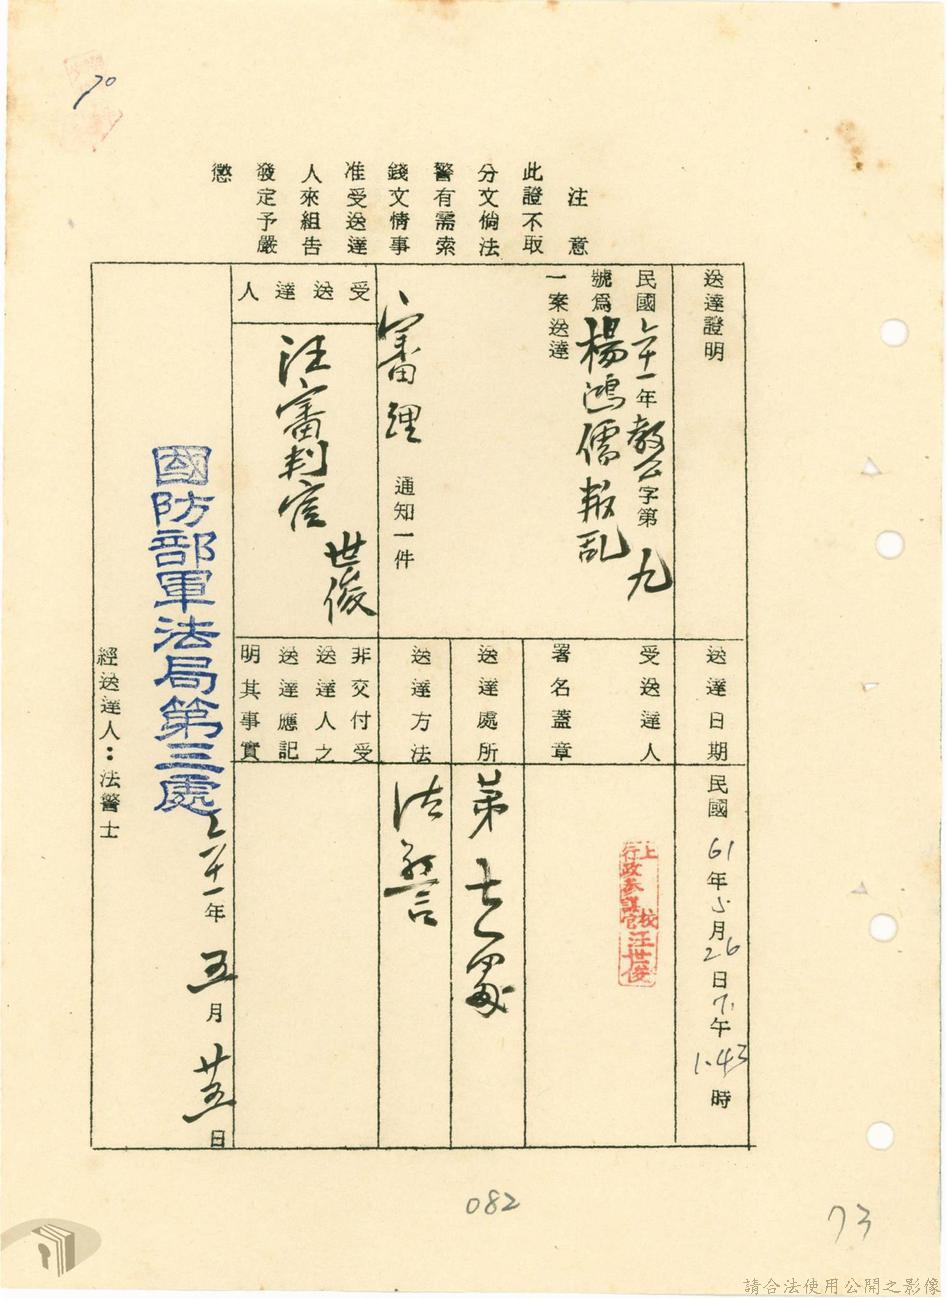 70
注意
此證不取
分文倘法
警有需索
錢文情事
准受送達
人來組告
發定予嚴
懲
送達證明
民國六十一年教公字第 九
號為楊鴻儒叛乱
一案送達
審理 通知一件
受送達人
汪審判官
世俊
送達日期
民國61年5月26日下午1.43時
受送達人
署名蓋章
上校
行政參謀官汪世俊
送達處所
第七處
送達方法
法警
非交付受
送達人之
送達應記
明其事實
國防部軍法局第三處
六十一年五月廿五日
經送達人：法警士
082
73
請合法使用公開之影像